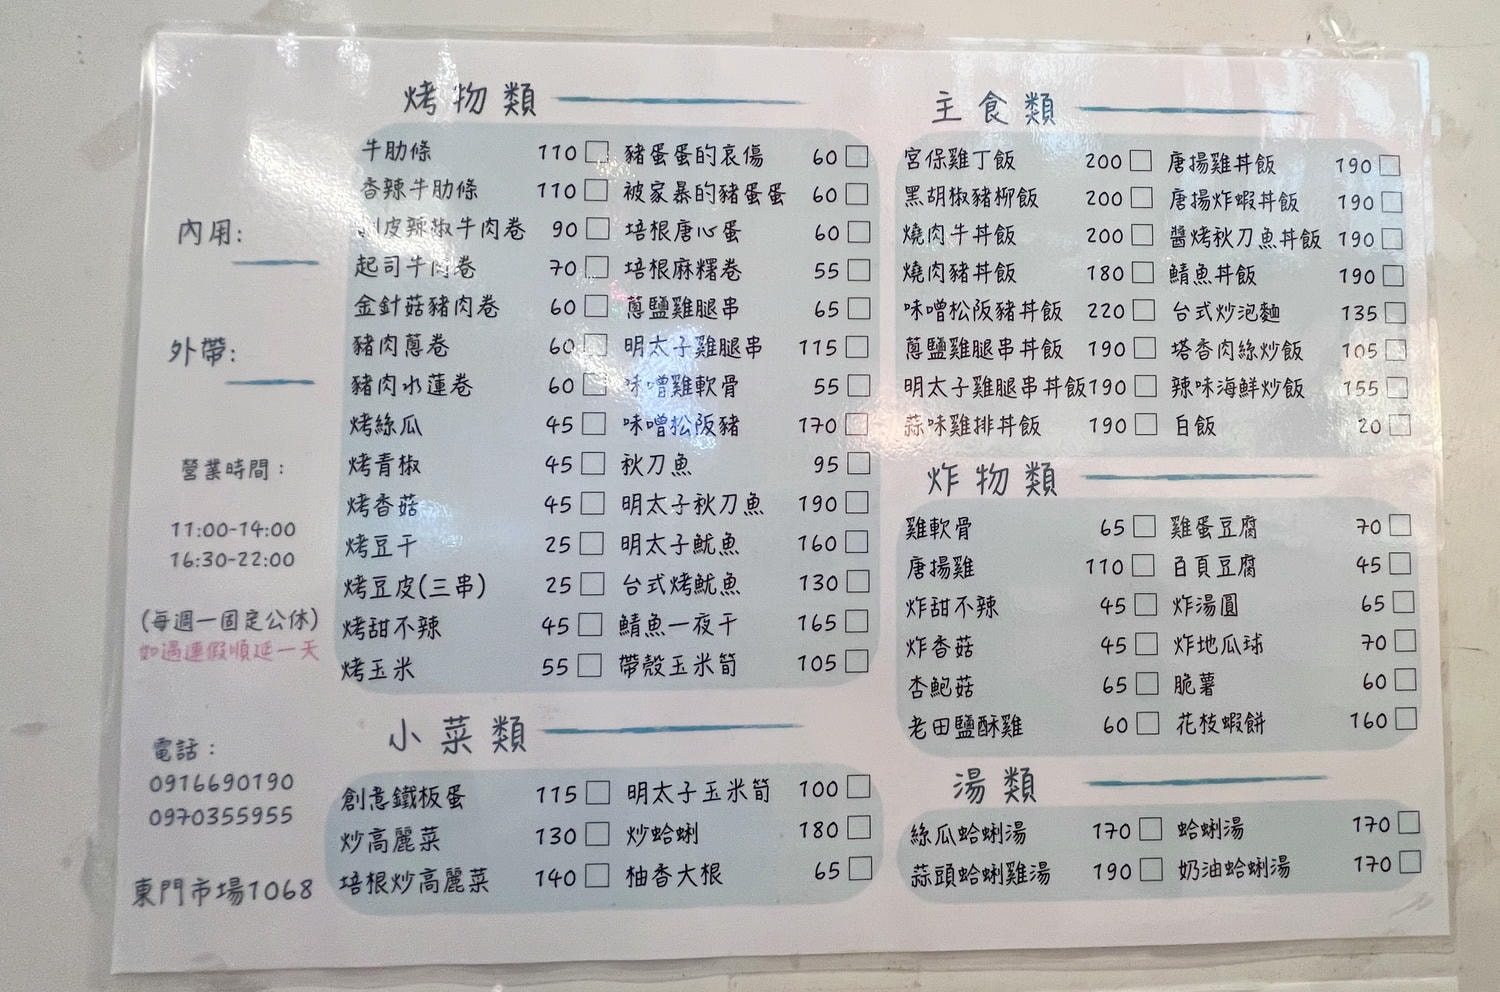 內用:
外帶:
營業時間:
11:00-14:00
16:30-22:00
(每週一固定公休)
如遇連假順延一天
電話:
0916690190
0970355955
東門市場1068
烤物類
牛肋條 110 豬蛋蛋的哀傷 60
香辣牛肋條 110 被家暴的豬蛋蛋 60
剝皮辣椒牛肉卷 90 培根唐心蛋 60
起司牛肉卷 70 培根麻糬卷 55
金針菇豬肉卷 60 蔥鹽雞腿串 65
豬肉蔥卷 60 明太子雞腿串 115
豬肉水蓮卷 60 味噌雞軟骨 55
烤絲瓜 45 味噌松阪豬 170
烤青椒 45 秋刀魚 95
烤香菇 45 明太子秋刀魚 190
烤豆干 25 明太子魷魚 160
烤豆皮(三串) 25 台式烤魷魚 130
烤甜不辣 45 鯖魚一夜干 165
烤玉米 55 帶殼玉米筍 105
小菜類
創意鐵板蛋 115 明太子玉米筍 100
炒高麗菜 130 炒蛤蜊 180
培根炒高麗菜 140 柚香大根 65
主食類
宮保雞丁飯 200 唐揚雞丼飯 190
黑胡椒豬柳飯 200 唐揚炸蝦丼飯 190
燒肉牛丼飯 200 醬烤秋刀魚丼飯 190
燒肉豬丼飯 180 鯖魚丼飯 190
味噌松阪豬丼飯 220 台式炒泡麵 135
蔥鹽雞腿串丼飯 190 塔香肉絲炒飯 105
明太子雞腿串丼飯 190 辣味海鮮炒飯 155
蒜味雞排丼飯 190 白飯 20
炸物類
雞軟骨 65 雞蛋豆腐 70
唐揚雞 110 百頁豆腐 45
炸甜不辣 45 炸湯圓 65
炸香菇 45 炸地瓜球 70
杏鮑菇 65 脆薯 60
老田鹽酥雞 60 花枝蝦餅 160
湯類
絲瓜蛤蜊湯 170 蛤蜊湯 170
蒜頭蛤蜊雞湯 190 奶油蛤蜊湯 170